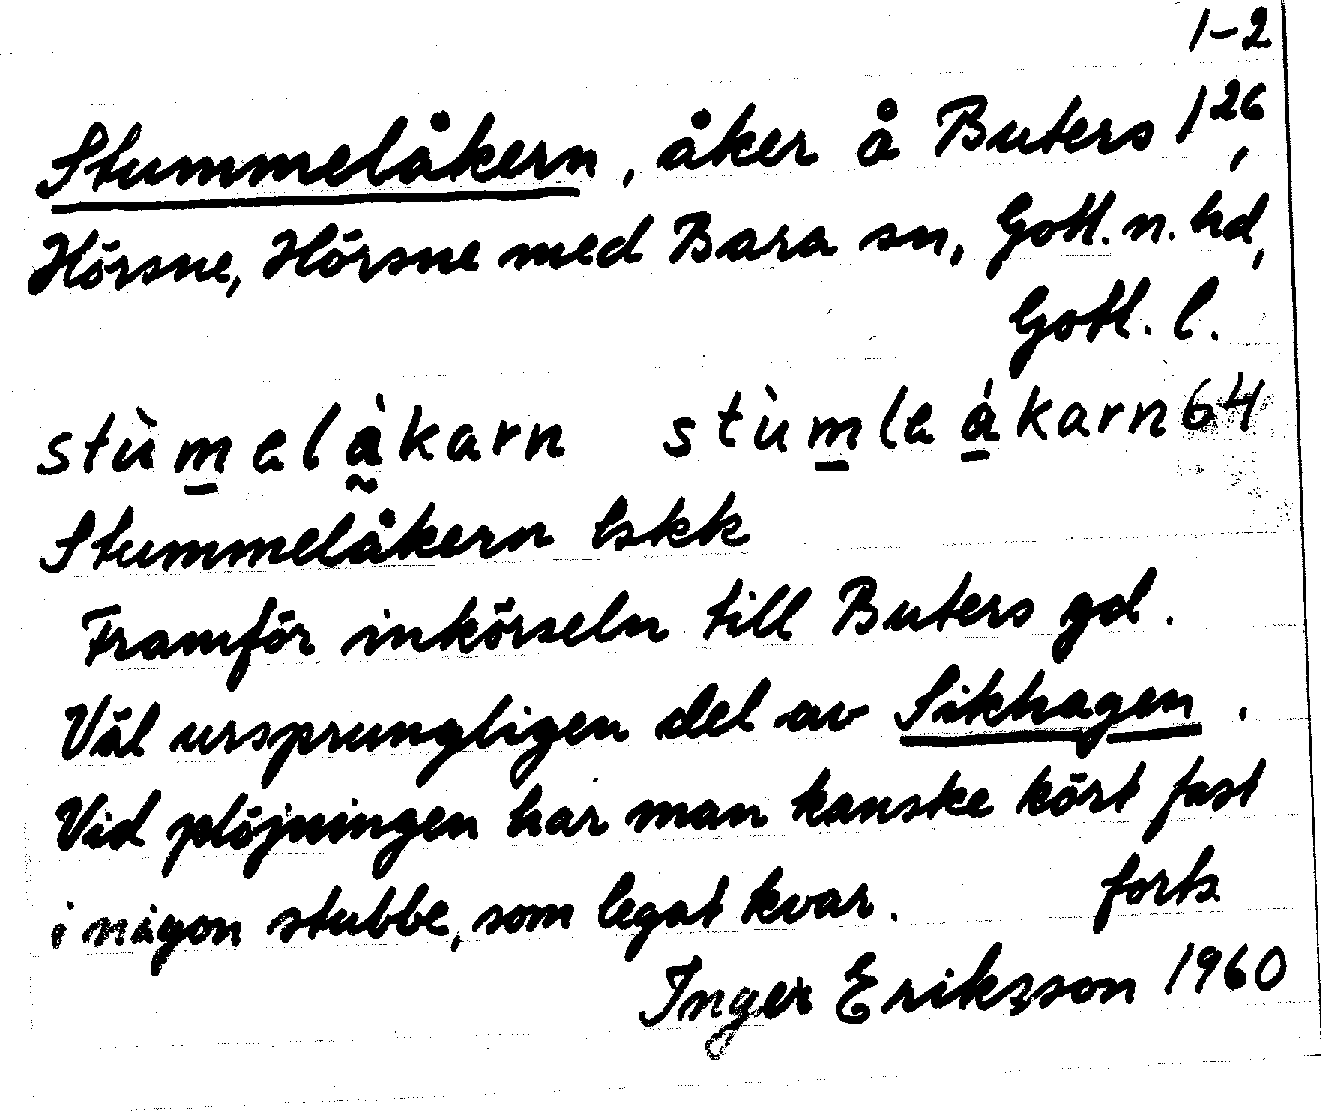 1-2
Stummelåkern, åker å Buters 1²⁶,
Hörsne, Hörsne med Bara sn, Gotl. n. hd,
Gotl. l.
stùmelåkarn stùmleåkarn 64
Stummelåkern lskk
Framför inkörseln till Buters gd.
Väl ursprungligen del av Sikhagen.
Vid plöjningen har man kanske kört fast
i någon stubbe, som legat kvar. forts.
Inger Eriksson 1960